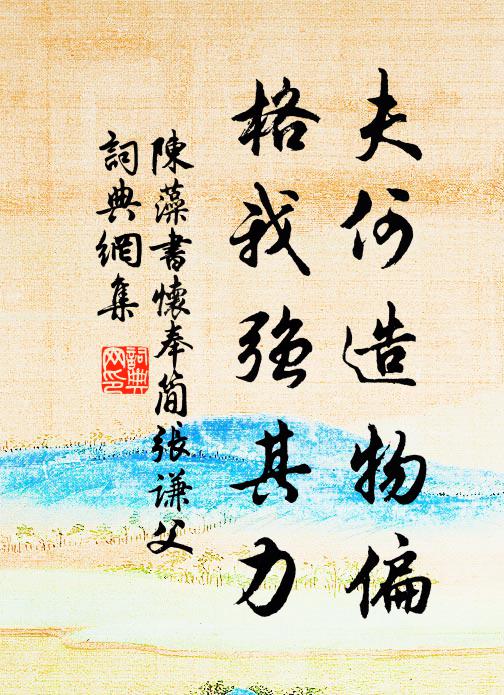 夫何造物偏
格我強其力
陳藻書懷奉簡張謙父
詞典網集
詞典
网印